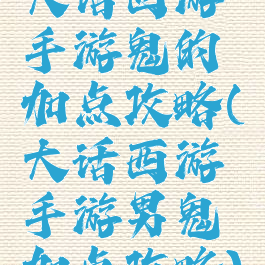 大话西游
手游鬼的
加点攻略(
大话西游
手游男鬼
加点攻略)